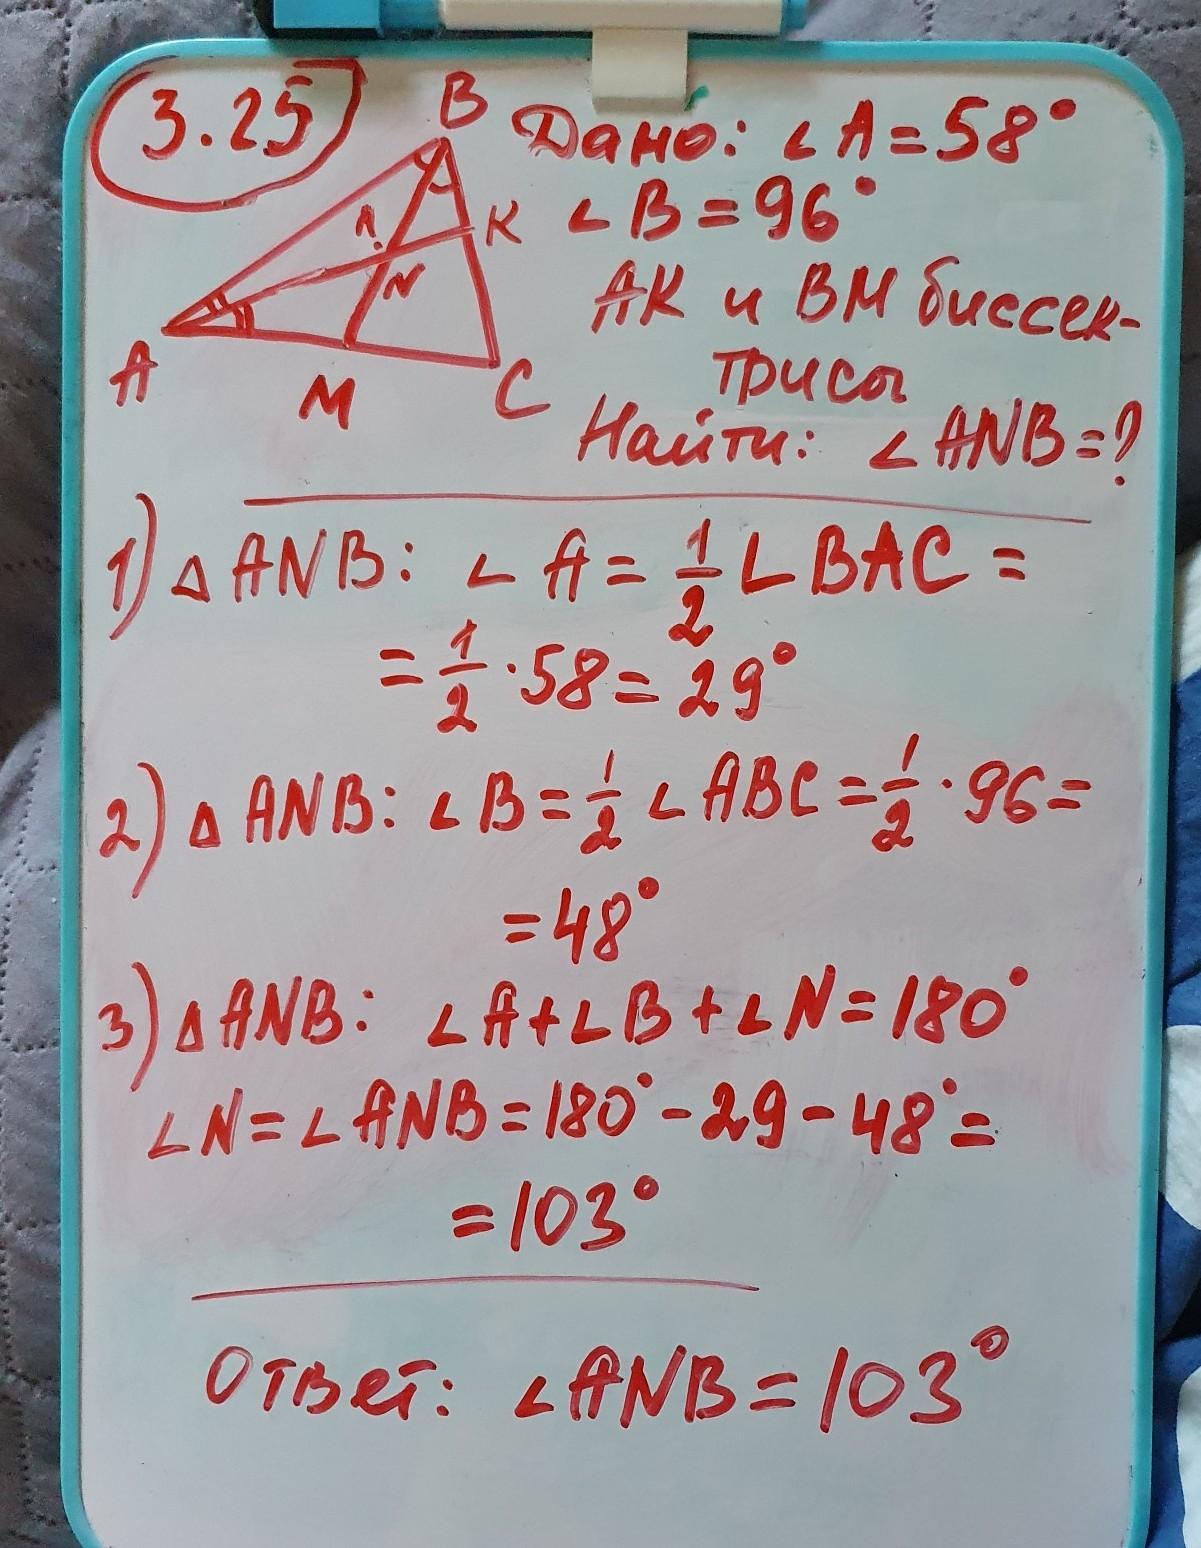 3.25
B
Дано: ∠A=58°
K
∠B=96°
N
AK и BM биссек-
трисы
A
M
C
Найти: ∠ANB=?
1) △ANB: ∠A=1/2∠BAC=
=1/2·58=29°
2) △ANB: ∠B=1/2∠ABC=1/2·96=
=48°
3) △ANB: ∠A+∠B+∠N=180°
∠N=∠ANB=180°-29-48°=
=103°
Ответ: ∠ANB=103°